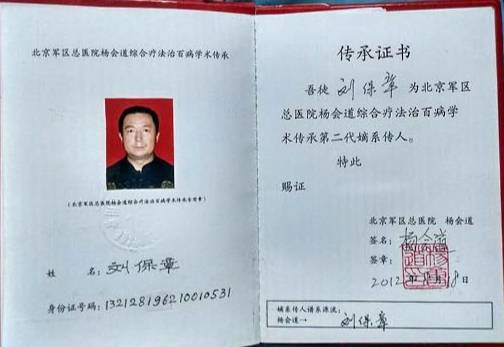 北京军区总医院杨会道综合疗法治百病学术传承
(北京军区总医院杨会道综合疗法治百病学术传承专用章)
姓 名:刘保章
身份证号码:132128196210010531
传承证书
吾徒 刘保章 为北京军区
总医院杨会道综合疗法治百病学
术传承第二代嫡系传人。
特此
赐证
北京军区总医院 杨会道
签名:杨会道
签章:
2012年 月18日
嫡系传人谱系源流:
杨会道→ 刘保章